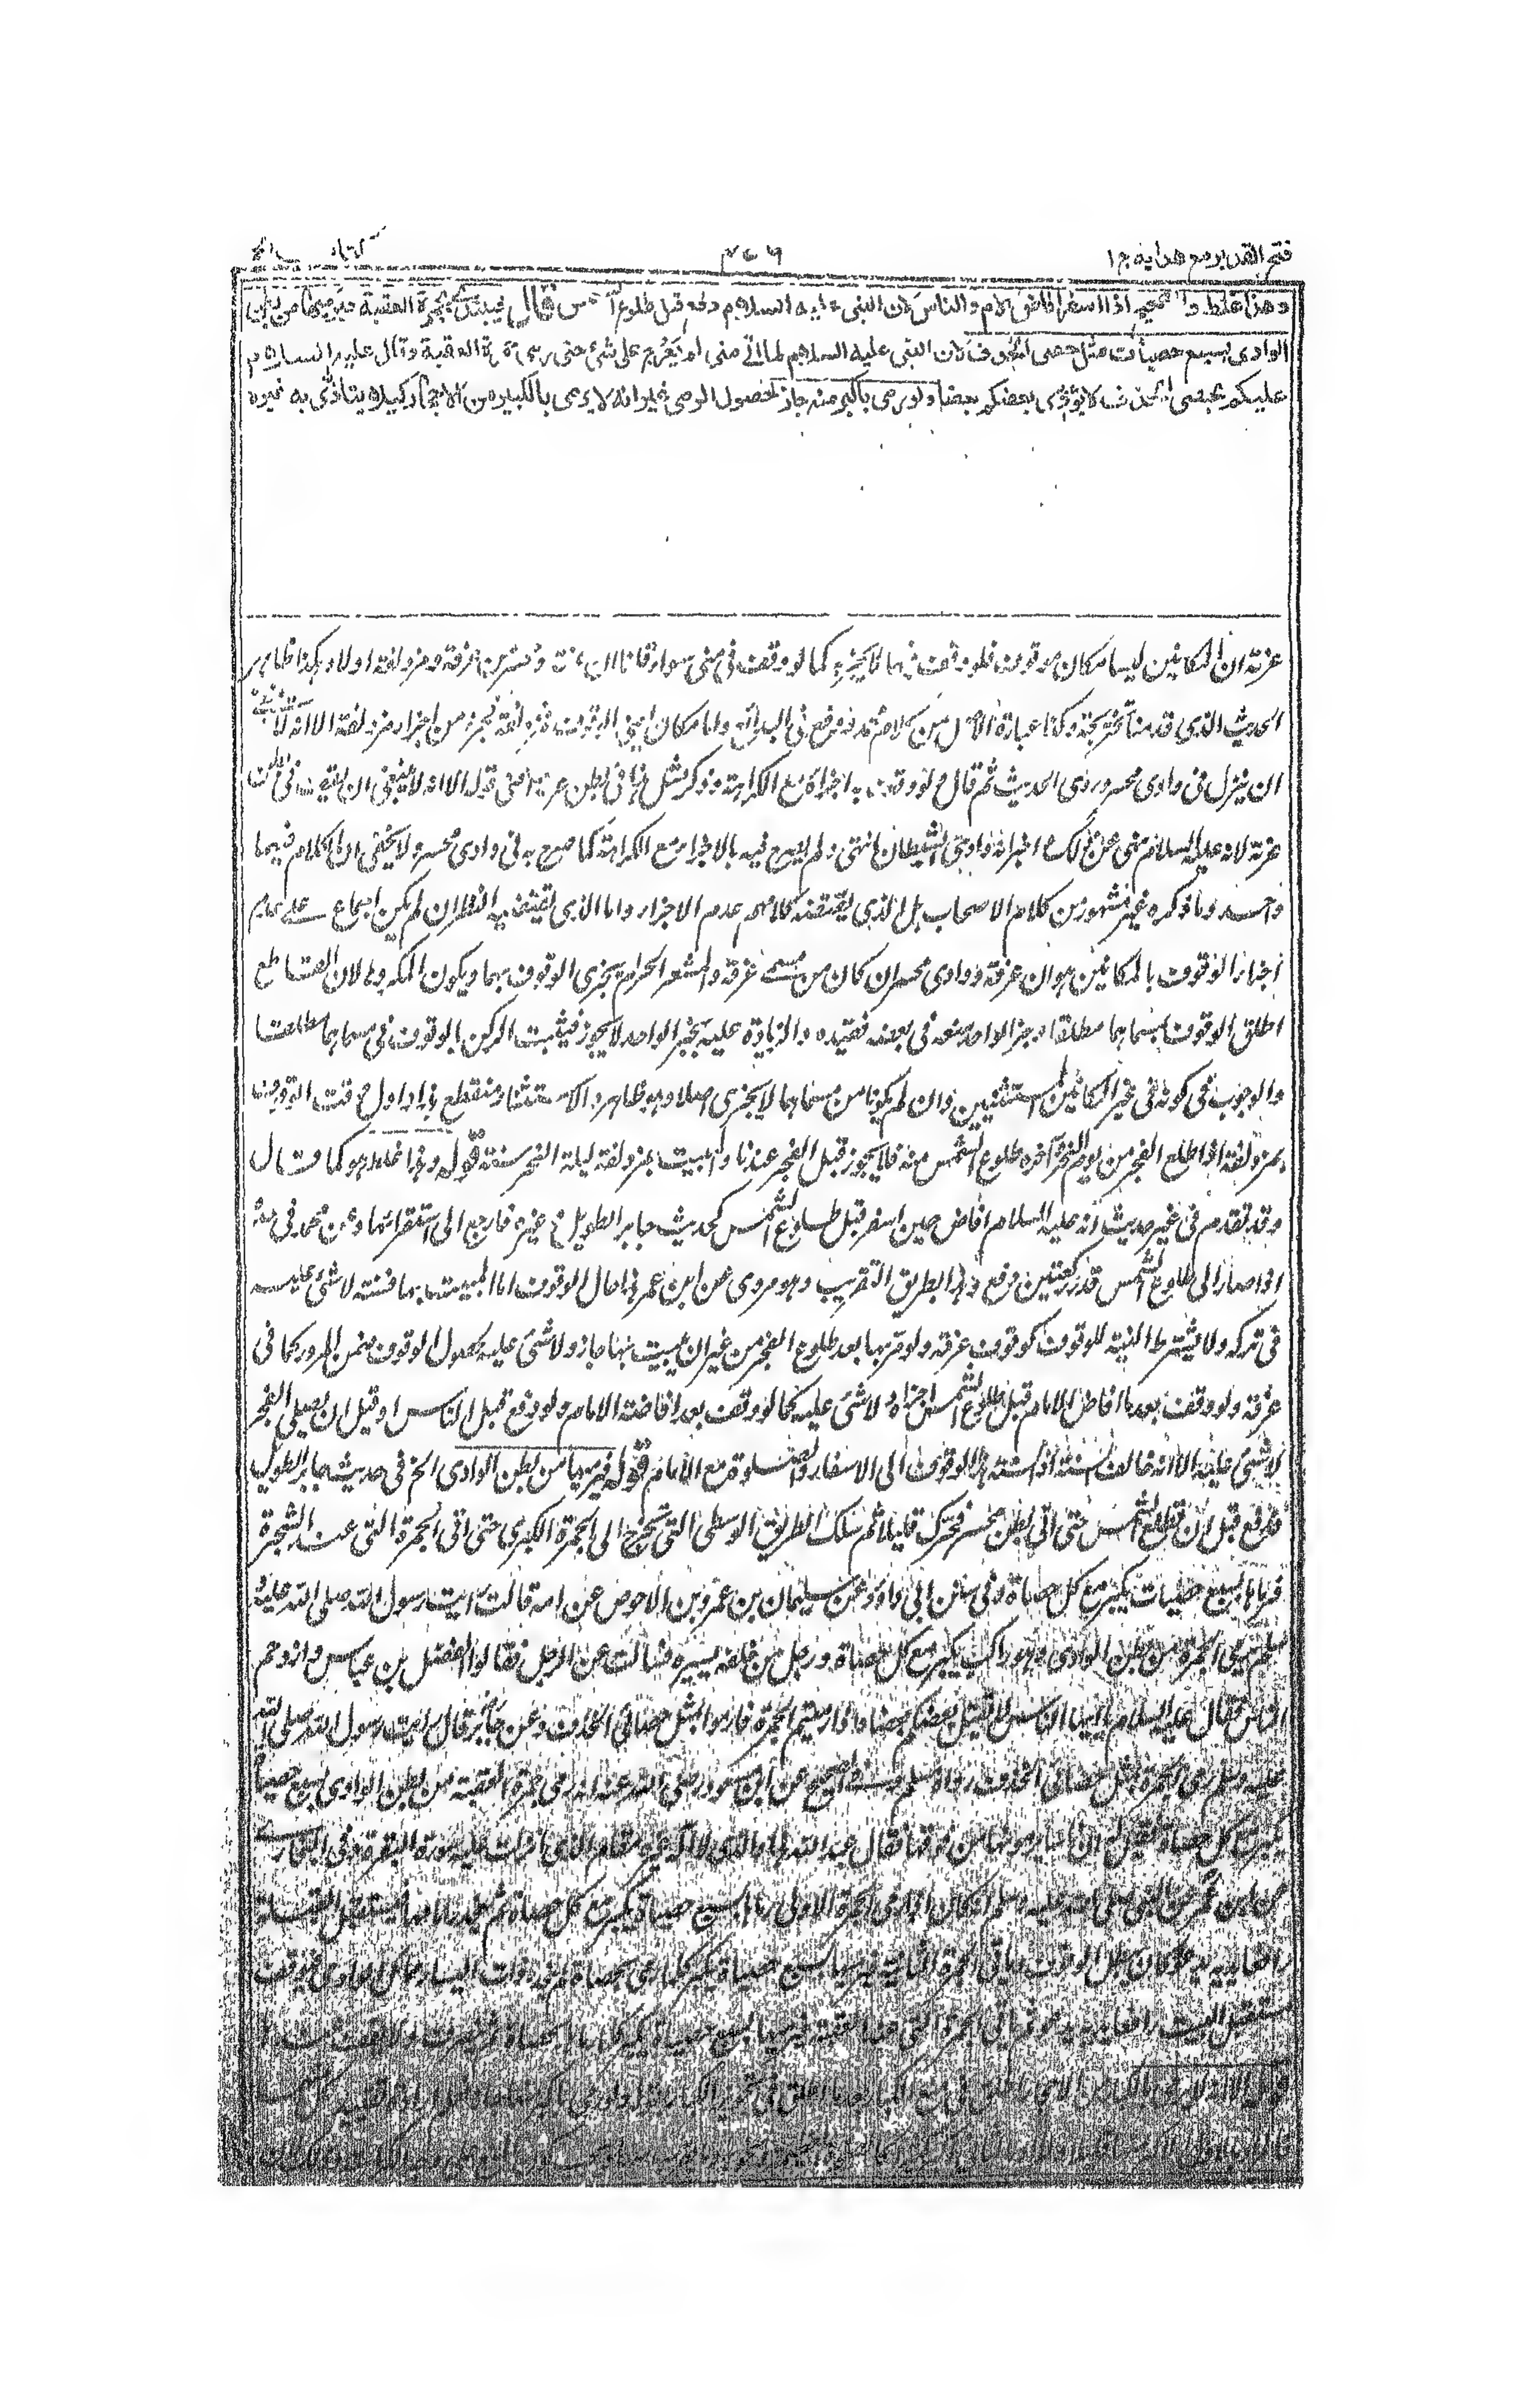 فتح القدير مع هدايه ج ١
كتاب الحج
وهذا غلط والصحيح اذا اسفر افاض الامام والناس لان النبى عليه السلام دفع قبل طلوع الشمس قال فيبتدئ بجمرة العقبة فيرميها من بطن
الوادى بسبع حصيات مثل حصى الخذف لان النبى عليه السلام لما اتى منى لم يعرج على شئ حتى رمى جمرة العقبة وقال عليه السلام
عليكم بحصى الخذف لا يؤذى بعضكم بعضا ولو رمى باكبر منه جاز لحصول الرمى غير انه لا يرمى بالكبير من الاحجار كيلا يتاذى به غيره
عرنة ان المكانين ليسا مكان وقوف فلو وقف فيهما لا يجزيه كما لو وقف فى منى سواء قلنا ان عرنة ومحسرا من عرفة ومزدلفة او لا وهكذا ظاهر
الحديث الذى قدمنا تخريجه وكذا عبارة الاصل من كلام محمد ووقع فى البدائع واما مكانه يعنى الوقوف بمزدلفة فجزء من اجزاء مزدلفة الا انه لا ينبغى
ان ينزل فى وادى محسر وروى الحديث ثم قال ولو وقف به اجزأه مع الكراهة وذكر مثل هذا فى بطن عرنة اعنى قوله الا انه لا ينبغى ان يقف فى بطن
عرنة لانه عليه السلام نهى عن ذلك واخبر انه وادى الشيطان انتهى ولم يصرح فيه بالاجزاء مع الكراهة كما صرح به فى وادى محسر ولا يخفى ان الكلام فيهما
واحد وما ذكره غير مشهور من كلام الاصحاب بل الذى يقتضيه كلامهم عدم الاجزاء واما الذى يقتضيه النظر ان لم يكن اجماع على عدم
اجزاء الوقوف بالمكانين هو ان عرنة ووادى محسر ان كان من مسمى عرفة والمشعر الحرام يجزى الوقوف بهما ويكون المكروها لان القاطع
اطلق الوقوف بمسماهما مطلقا وخبر الواحد منعه فى بعضه فقيده والزيادة عليه بخبر الواحد لا يجوز فيثبت الركن بالوقوف فى مسماهما مطلقا
والوجوب فى كونه فى غير المكانين المستثنيين وان لم يكونا من مسماهما لا يجزى اصلا وهو ظاهر والاستثناء منقطع هذا واول وقت الوقوف
بمزدلفة اذا طلع الفجر من يوم النحر وآخره طلوع الشمس منه فلا يجوز قبل الفجر عندنا والمبيت بمزدلفة ليلة النحر سنة قوله وهذا غلط هو كما قال
وقد تقدم فى غير حديث انه عليه السلام افاض حين اسفر قبل طلوع الشمس كحديث جابر الطويل وغيره فارجع الى استقرائها وعن محمد فى حده
اذا صار الى طلوع الشمس قدر ركعتين دفع وهذا بطريق التقريب وهو مروى عن ابن عمر هذا حال الوقوف اما المبيت بها فسنة لا شئ عليه
فى تركه ولا يشترط النية للوقوف كوقوف عرفة ولو مر بها بعد طلوع الفجر من غير ان يبيت بها جاز ولا شئ عليه لحصول الوقوف ضمن المرور كما فى
عرفة ولو وقف بعد ما افاض الامام قبل طلوع الشمس اجزأه ولا شئ عليه كما لو وقف بعد افاضة الامام ولو دفع قبل الناس او قبل ان يصلى الفجر
لا شئ عليه الا انه خالف السنة اذ السنة مد الوقوف الى الاسفار والصلوة مع الامام قوله فيرميها من بطن الوادى الخ فى حديث جابر الطويل
فدفع قبل ان تطلع الشمس حتى اتى بطن محسر فحرك قليلا ثم سلك الطريق الوسطى التى تخرج الى الجمرة الكبرى حتى اتى الجمرة التى عند الشجرة
فرماها بسبع حصيات يكبر مع كل حصاة وفى سنن ابى داود عن سليمان بن عمرو بن الاحوص عن امه قالت رأيت رسول الله صلى الله عليه
وسلم يرمى الجمرة من بطن الوادى وهو راكب يكبر مع كل حصاة ورجل من خلفه يستره فسألت عن الرجل فقالوا الفضل بن عباس وازدحم
الناس فقال عليه السلام يا ايها الناس لا يقتل بعضكم بعضا واذا رميتم الجمرة فارموا بمثل حصى الخذف وعن جابر قال رأيت رسول الله صلى الله
عليه وسلم رمى الجمرة بمثل حصى الخذف رواه مسلم وفى الصحيح عن ابن مسعود رضى الله عنه انه رمى جمرة العقبة من بطن الوادى بسبع حصيات
يكبر مع كل حصاة فقيل له ان ناسا يرمونها من فوقها فقال عبد الله هذا والذى لا اله غيره مقام الذى انزلت عليه سورة البقرة وفى البخارى
عن ابن عمر عن النبى صلى الله عليه وسلم انه كان اذا رمى الجمرة الاولى رماها بسبع حصيات يكبر مع كل حصاة ثم
رافعا يديه يدعو وكان يطيل الوقوف ويأتى الجمرة الثانية فيرميها بسبع حصيات يكبر كلما رمى بحصاة ثم ينحدر ذات اليسار مما يلى الوادى فيقف
مستقبل البيت رافعا يديه يدعو ثم يأتى الجمرة التى عند العقبة فيرميها بسبع حصيات يكبر